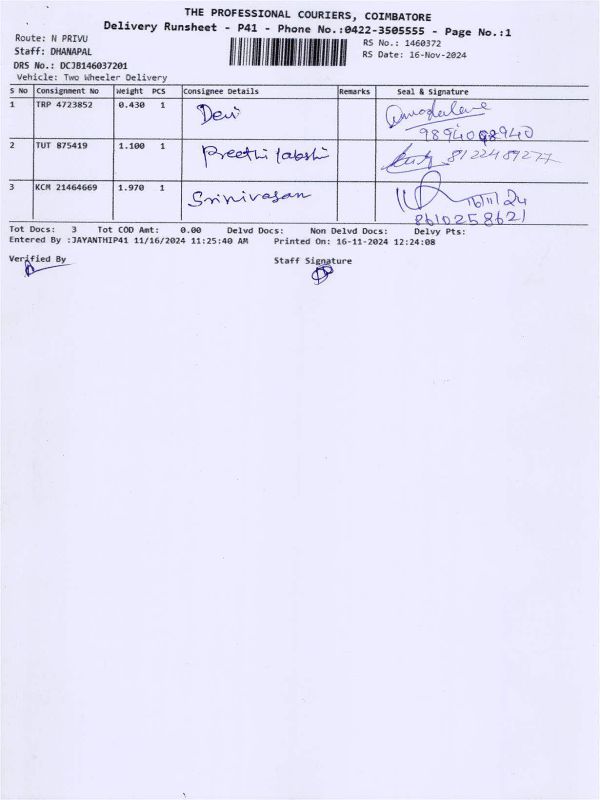 THE PROFESSIONAL COURIERS, COIMBATORE
Delivery Runsheet - P41 - Phone No.:0422-3505555 - Page No.:1
Route: N PRIVU
RS No.: 1460372
Staff: DHANAPAL
RS Date: 16-Nov-2024
DRS No.: DCJB146037201
Vehicle: Two Wheeler Delivery
S No Consignment No Weight PCS Consignee Details Remarks Seal & Signature
1 TRP 4723852 0.430 1 Devi
9894098940
2 TUT 875419 1.100 1 Preethi labshi 8122489277
3 KCM 21464669 1.970 1 Srinivasan 16/11/24
8610258621
Tot Docs: 3 Tot COD Amt: 0.00 Delvd Docs: Non Delvd Docs: Delvy Pts:
Entered By :JAYANTHIP41 11/16/2024 11:25:40 AM Printed On: 16-11-2024 12:24:08
Verified By Staff Signature